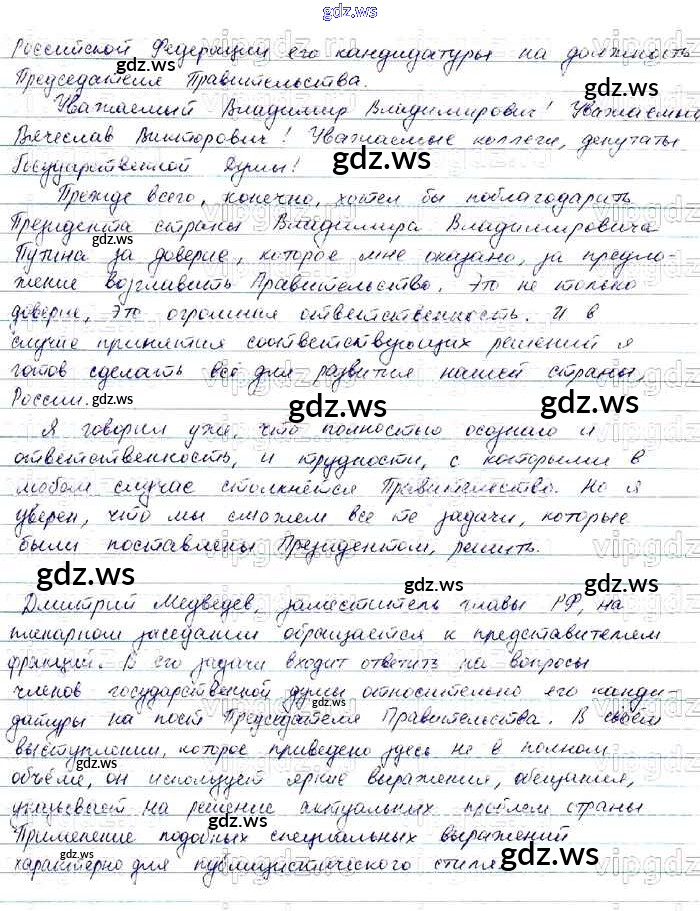 gdz.ws
Российской Федерации его кандидатуры на должность
Председателя Правительства.
Уважаемый Владимир Владимирович! Уважаемый
Вячеслав Викторович! Уважаемые коллеги, депутаты
Государственной Думы!
Прежде всего, конечно, хотел бы поблагодарить
Президента страны Владимира Владимировича
Путина за доверие, которое мне оказано, за предло-
жение возглавить Правительство. Это не только
доверие, это огромная ответственность. И в
случае принятия соответствующих решений я
готов сделать всё для развития нашей страны,
России.
Я говорил уже, что полностью осознаю и
ответственность, и трудности, с которыми в
любом случае столкнётся Правительство. Но я
уверен, что мы сможем все те задачи, которые
были поставлены Президентом, решить.
Дмитрий Медведев, заместитель главы РФ, на
пленарном заседании обращается к представителям
фракций. В его задачи входит ответить на вопросы
членов государственной думы относительно его канди-
датуры на пост Председателя Правительства. В своём
выступлении, которое приведено здесь не в полном
объёме, он использует яркие выражения, обещания,
указывает на решение актуальных проблем страны
Применение подобных специальных выражений
характерно для публицистического стиля.